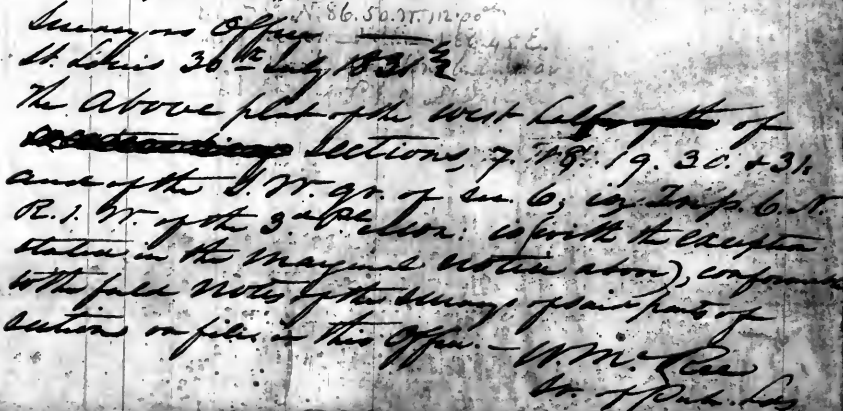 N. 86.50. W. 112.00
Surveyors Office
St. Louis 30th July 1831
The Above plat of the West half of
Sections, 7. 18. 19. 30. & 31.
and of the S. W. qr. of sec. 6, in Tnsp. 6. N.
R. 1. W. of the 3rd Pl. Mer. is (with the exception
stated in the marginal notice above), conformable
to the field notes of the survey of said parts of
sections on file in this Office. —
Wm. McRee
Sr. of Pub. Lds